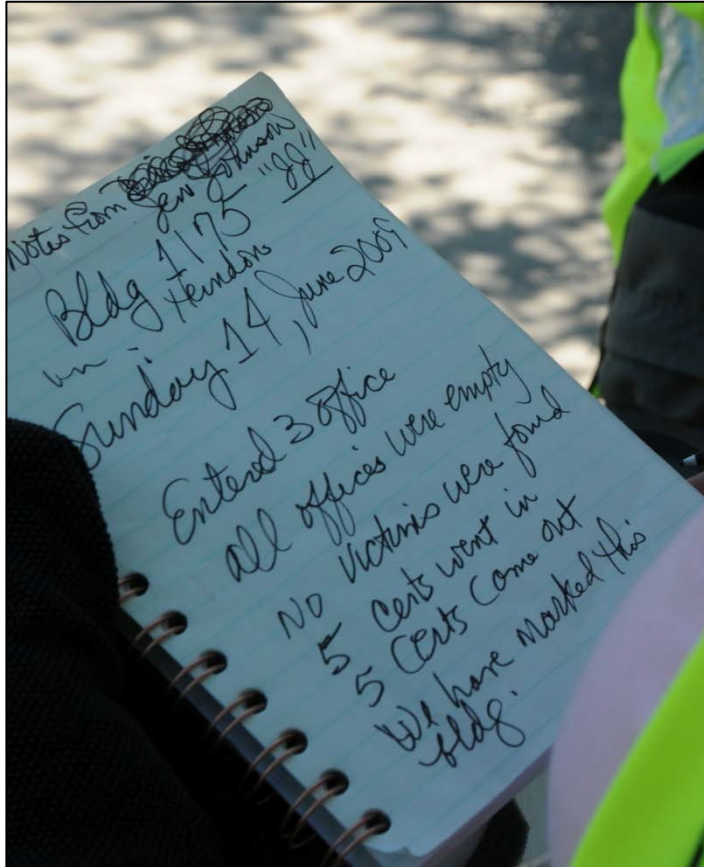 Notes from Jew Johnson "JJ"
Bldg 1175
in Herndon
Sunday 14, June 2009
Entered 3 office
All offices were empty
No victims were found
5 certs went in
5 certs come out
We have marked this
bldg.